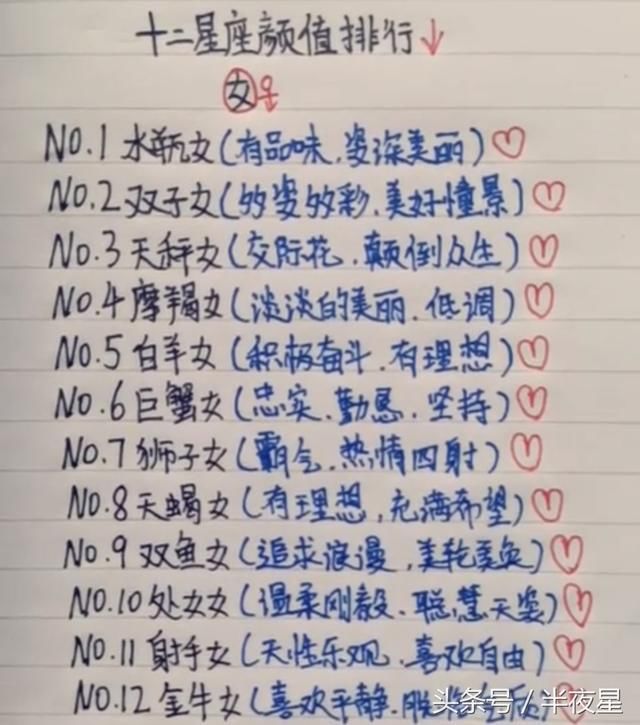 十二星座颜值排行↓
女♀
NO.1 水瓶女(有品味.资深美丽)
NO.2 双子女(多姿多彩.美好憧景)
NO.3 天秤女(交际花.颠倒众生)
NO.4 摩羯女(淡淡的美丽.低调)
NO.5 白羊女(积极奋斗.有理想)
NO.6 巨蟹女(忠实.勤恳.坚持)
NO.7 狮子女(霸气.热情四射)
NO.8 天蝎女(有理想,充满希望)
NO.9 双鱼女(追求浪漫,美轮美奂)
NO.10 处女女(温柔刚毅.聪慧天姿)
NO.11 射手女(天性乐观.喜欢自由)
NO.12 金牛女(喜欢平静.
头条号/半夜星